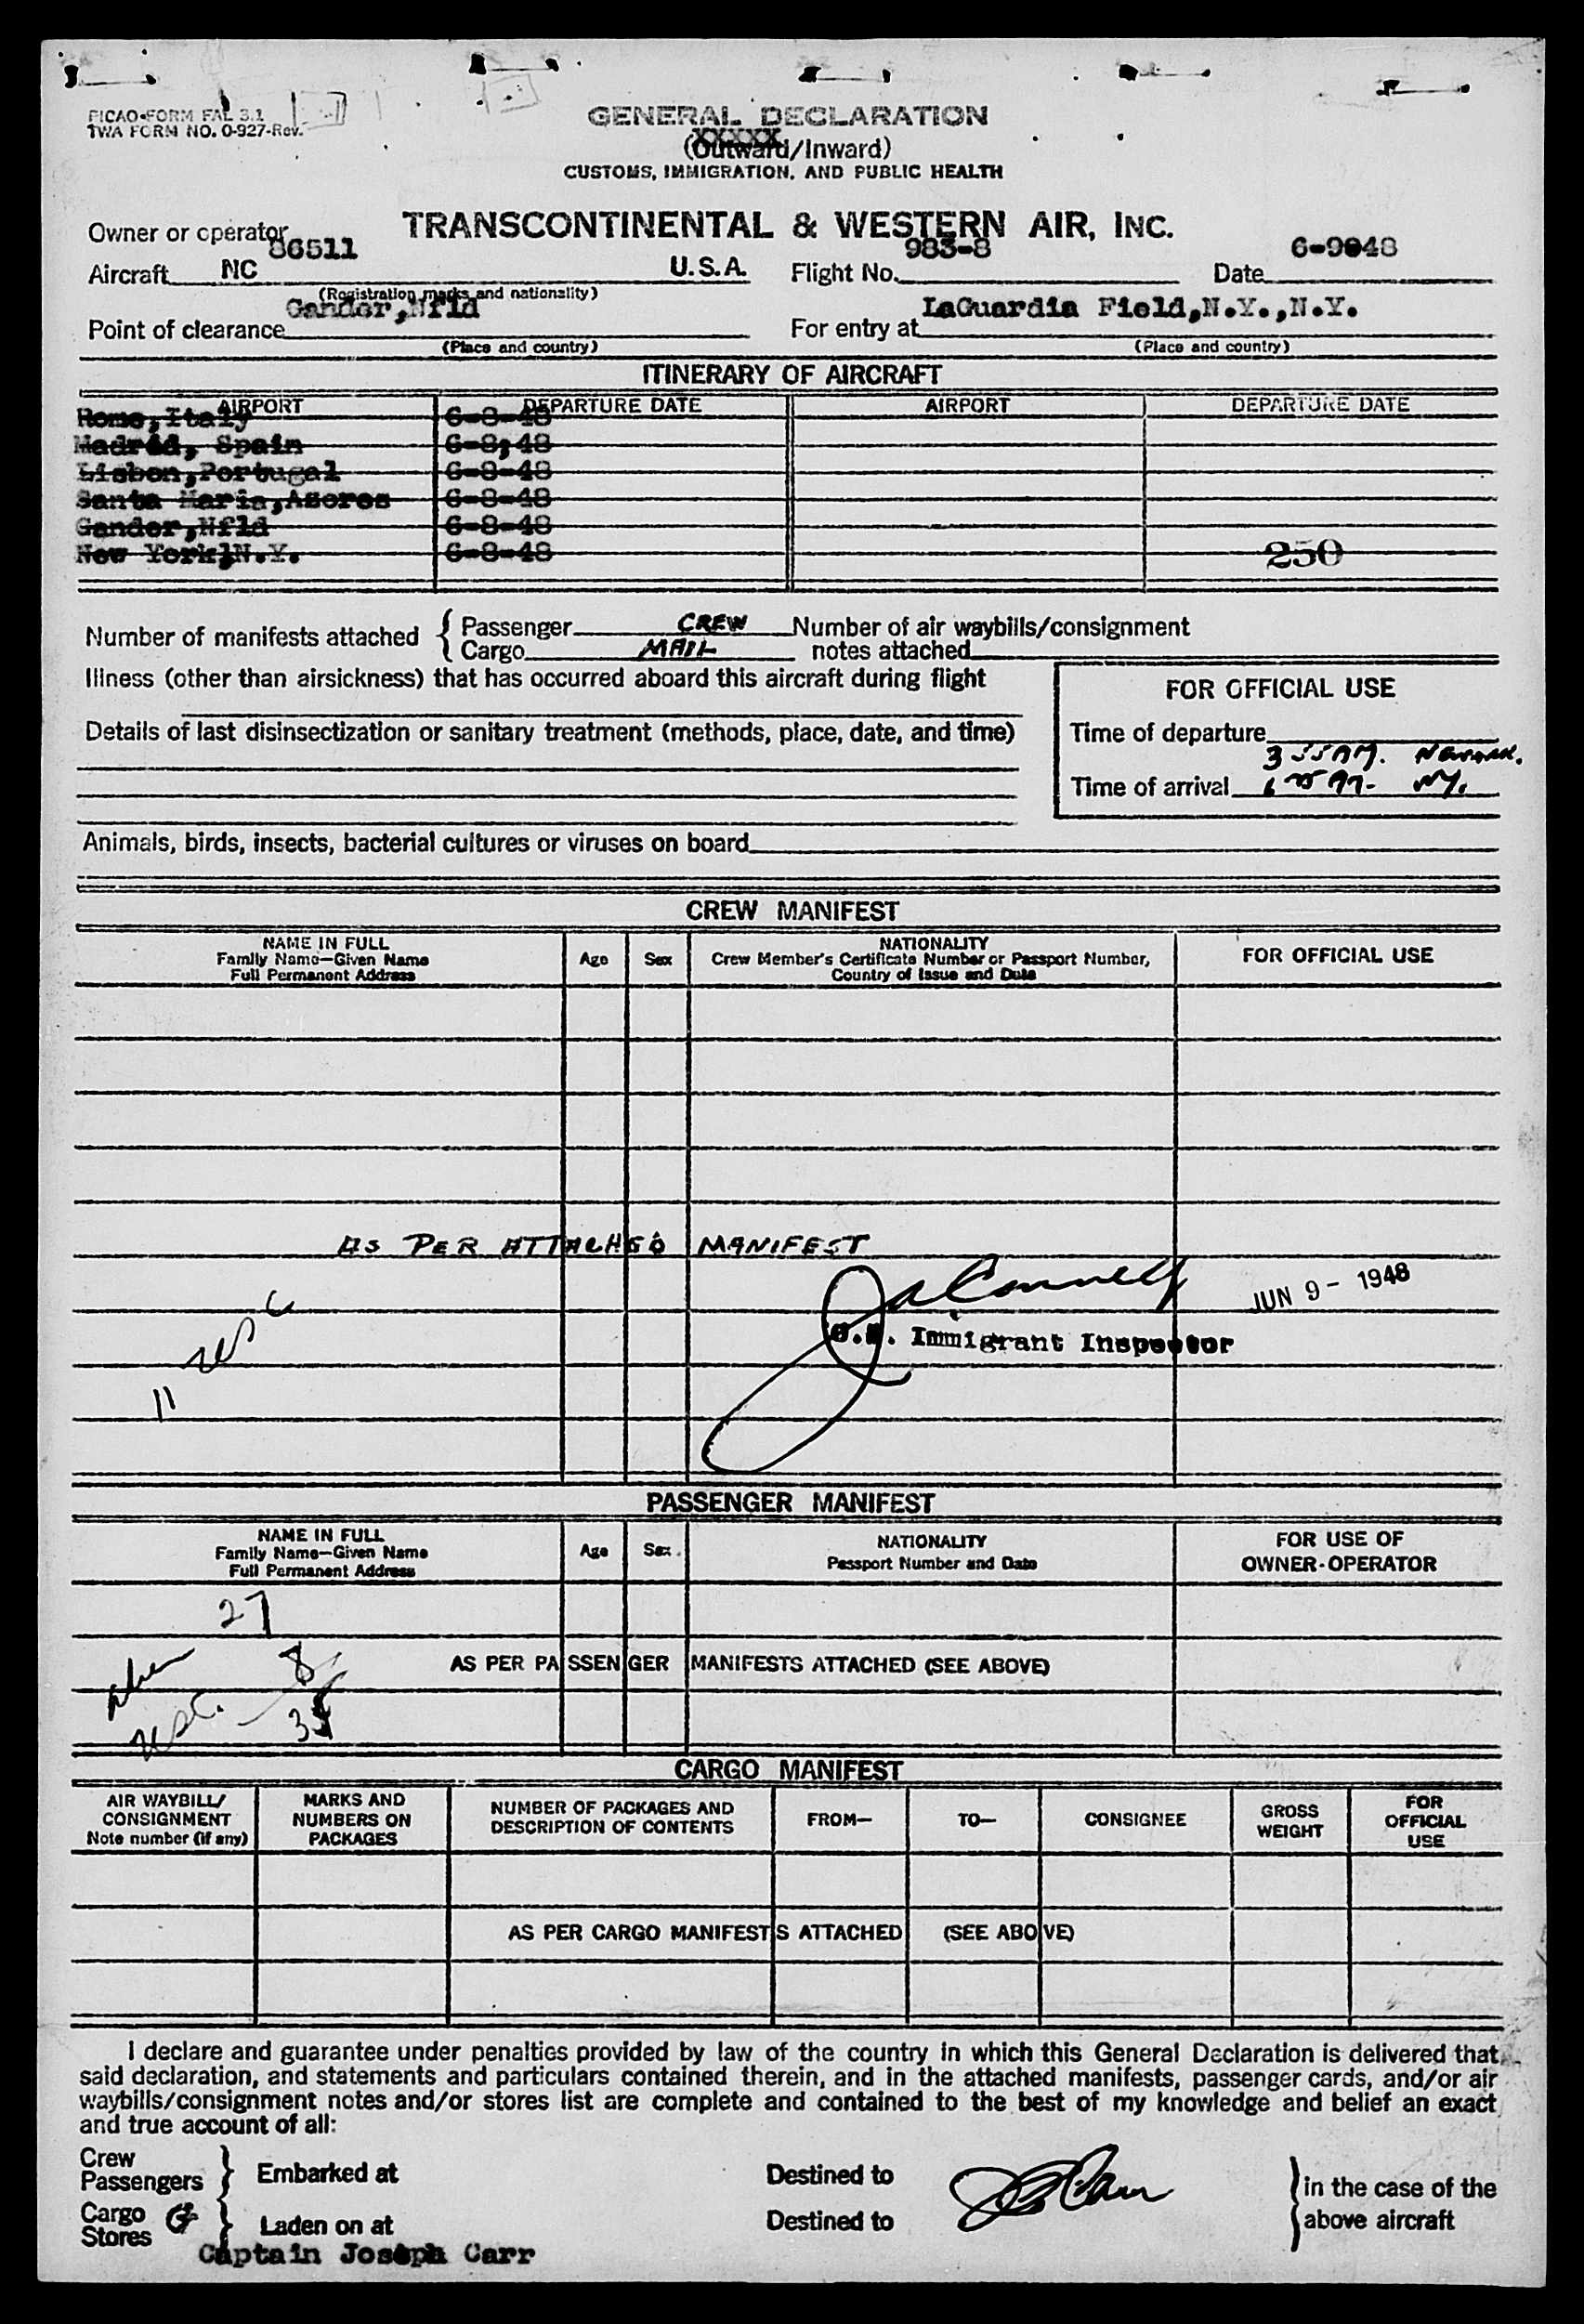 PICAO-FORM FAL 3.1
TWA FORM NO. O-927-Rev.
GENERAL DECLARATION
(Outward/Inward)
XXXXX
CUSTOMS, IMMIGRATION, AND PUBLIC HEALTH
Owner or operator TRANSCONTINENTAL & WESTERN AIR, INC.
Aircraft NC 86511 U.S.A. Flight No. 983-8 Date 6-9948
(Registration marks and nationality)
Point of clearance Gander,Nfld For entry at LaGuardia Field,N.Y.,N.Y.
(Place and country) (Place and country)
ITINERARY OF AIRCRAFT
AIRPORT DEPARTURE DATE AIRPORT DEPARTURE DATE
Rome,Italy 6-8-48
Madrid, Spain 6-8,48
Lisbon,Portugal 6-8-48
Santa Maria,Azores 6-8-48
Gander,Nfld 6-8-48
New York,N.Y. 6-8-48 250
Number of manifests attached { Passenger CREW Number of air waybills/consignment
Cargo MAIL notes attached
Illness (other than airsickness) that has occurred aboard this aircraft during flight
FOR OFFICIAL USE
Details of last disinsectization or sanitary treatment (methods, place, date, and time)
Time of departure
3 55 AM. Newark.
Time of arrival NY.
Animals, birds, insects, bacterial cultures or viruses on board
CREW MANIFEST
NAME IN FULL
Family Name—Given Name
Full Permanent Address
Age
Sex
NATIONALITY
Crew Member's Certificate Number or Passport Number,
Country of Issue and Date
FOR OFFICIAL USE
AS PER ATTACHED MANIFEST
JUN 9 - 1948
U.S. Immigrant Inspector
11 USC
PASSENGER MANIFEST
NAME IN FULL
Family Name—Given Name
Full Permanent Address
Age
Sex
NATIONALITY
Passport Number and Date
FOR USE OF
OWNER-OPERATOR
27
alien 8
AS PER PASSENGER MANIFESTS ATTACHED (SEE ABOVE)
USC. 35
CARGO MANIFEST
AIR WAYBILL/
CONSIGNMENT
Note number (if any)
MARKS AND
NUMBERS ON
PACKAGES
NUMBER OF PACKAGES AND
DESCRIPTION OF CONTENTS
FROM—
TO—
CONSIGNEE
GROSS
WEIGHT
FOR
OFFICIAL
USE
AS PER CARGO MANIFESTS ATTACHED (SEE ABOVE)
I declare and guarantee under penalties provided by law of the country in which this General Declaration is delivered that
said declaration, and statements and particulars contained therein, and in the attached manifests, passenger cards, and/or air
waybills/consignment notes and/or stores list are complete and contained to the best of my knowledge and belief an exact
and true account of all:
Crew
Passengers } Embarked at Destined to
Cargo
Stores } Laden on at Destined to
in the case of the
above aircraft
Captain Joseph Carr